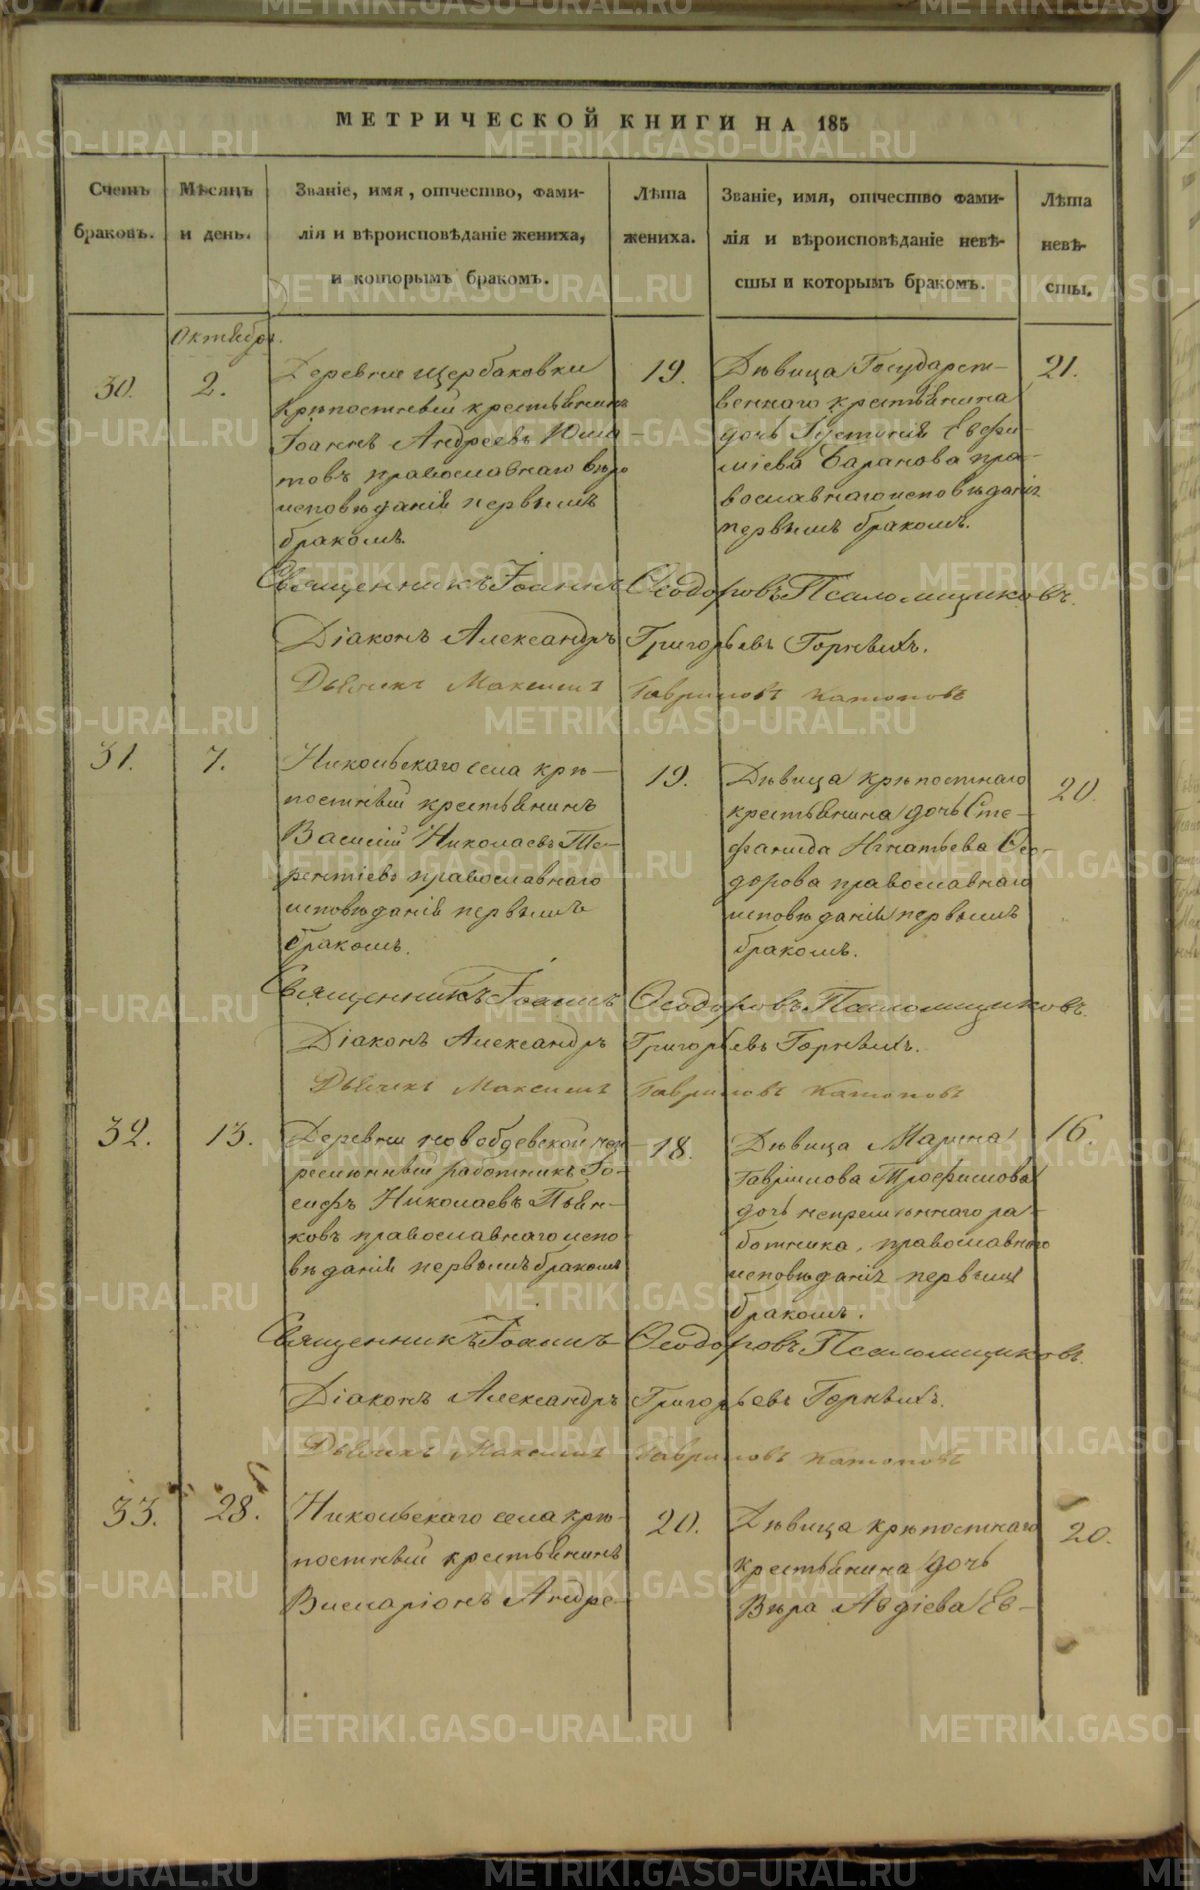 МЕТРИЧЕСКОЙ КНИГИ НА 185
Счетъ браковъ.
Мѣсяцъ и день.
Званіе, имя, отчество, фами-
лія и вѣроисповѣданіе жениха,
и которымъ бракомъ.
Лѣта
жениха.
Званіе, имя, отчество фами-
лія и вѣроисповѣданіе невѣ-
сты и которымъ бракомъ.
Лѣта
невѣ-
сты.
Октября.
30.
2.
Деревни Щербаковки
крѣпостный крестьянинъ
Іоаннъ Андреевъ
православнаго вѣро
исповѣданія первымъ
бракомъ.
19.
Дѣвица Государст-
веннаго крестьянина
дочь Іустинія Евфи-
міева Баранова пра-
вославнаго исповѣданія
первымъ бракомъ.
21.
Священникъ Іоаннъ Ѳеодоровъ Псаломщиковъ.
Діаконъ Александръ Григорьевъ Горныхъ.
Дьячекъ Максимъ Гавриловъ
31.
7.
Никольскаго села крѣ-
постный крестьянинъ
Василій Николаевъ Те-
рентіевъ православнаго
исповѣданія первымъ
бракомъ.
19.
Дѣвица крѣпостнаго
крестьянина дочь Сте-
фанида Игнатьева Ѳео-
дорова православнаго
исповѣданія первымъ
бракомъ.
20.
Священникъ Іоаннъ Ѳеодоровъ Псаломщиковъ.
Діаконъ Александръ Григорьевъ Горныхъ.
Дьячекъ Максимъ Гавриловъ
32.
13.
Деревни непре-
мѣнный работникъ Іо-
сифъ Николаевъ Пьян-
ковъ православнаго испо-
вѣданія первымъ бракомъ
18.
Дѣвица Марина
Гаврилова Трофимова
дочь непремѣннаго ра-
ботника, православнаго
исповѣданія первымъ
бракомъ.
16.
Священникъ Іоаннъ Ѳеодоровъ Псаломщиковъ.
Діаконъ Александръ Григорьевъ Горныхъ.
Дьячекъ Максимъ Гавриловъ
33.
28.
Никольскаго села крѣ-
постный крестьянинъ
Виссаріонъ Андре-
20.
Дѣвица крѣпостнаго
крестьянина дочь
Вѣра Авдіева Ев-
20.
METRIKI.GASO-URAL.RU